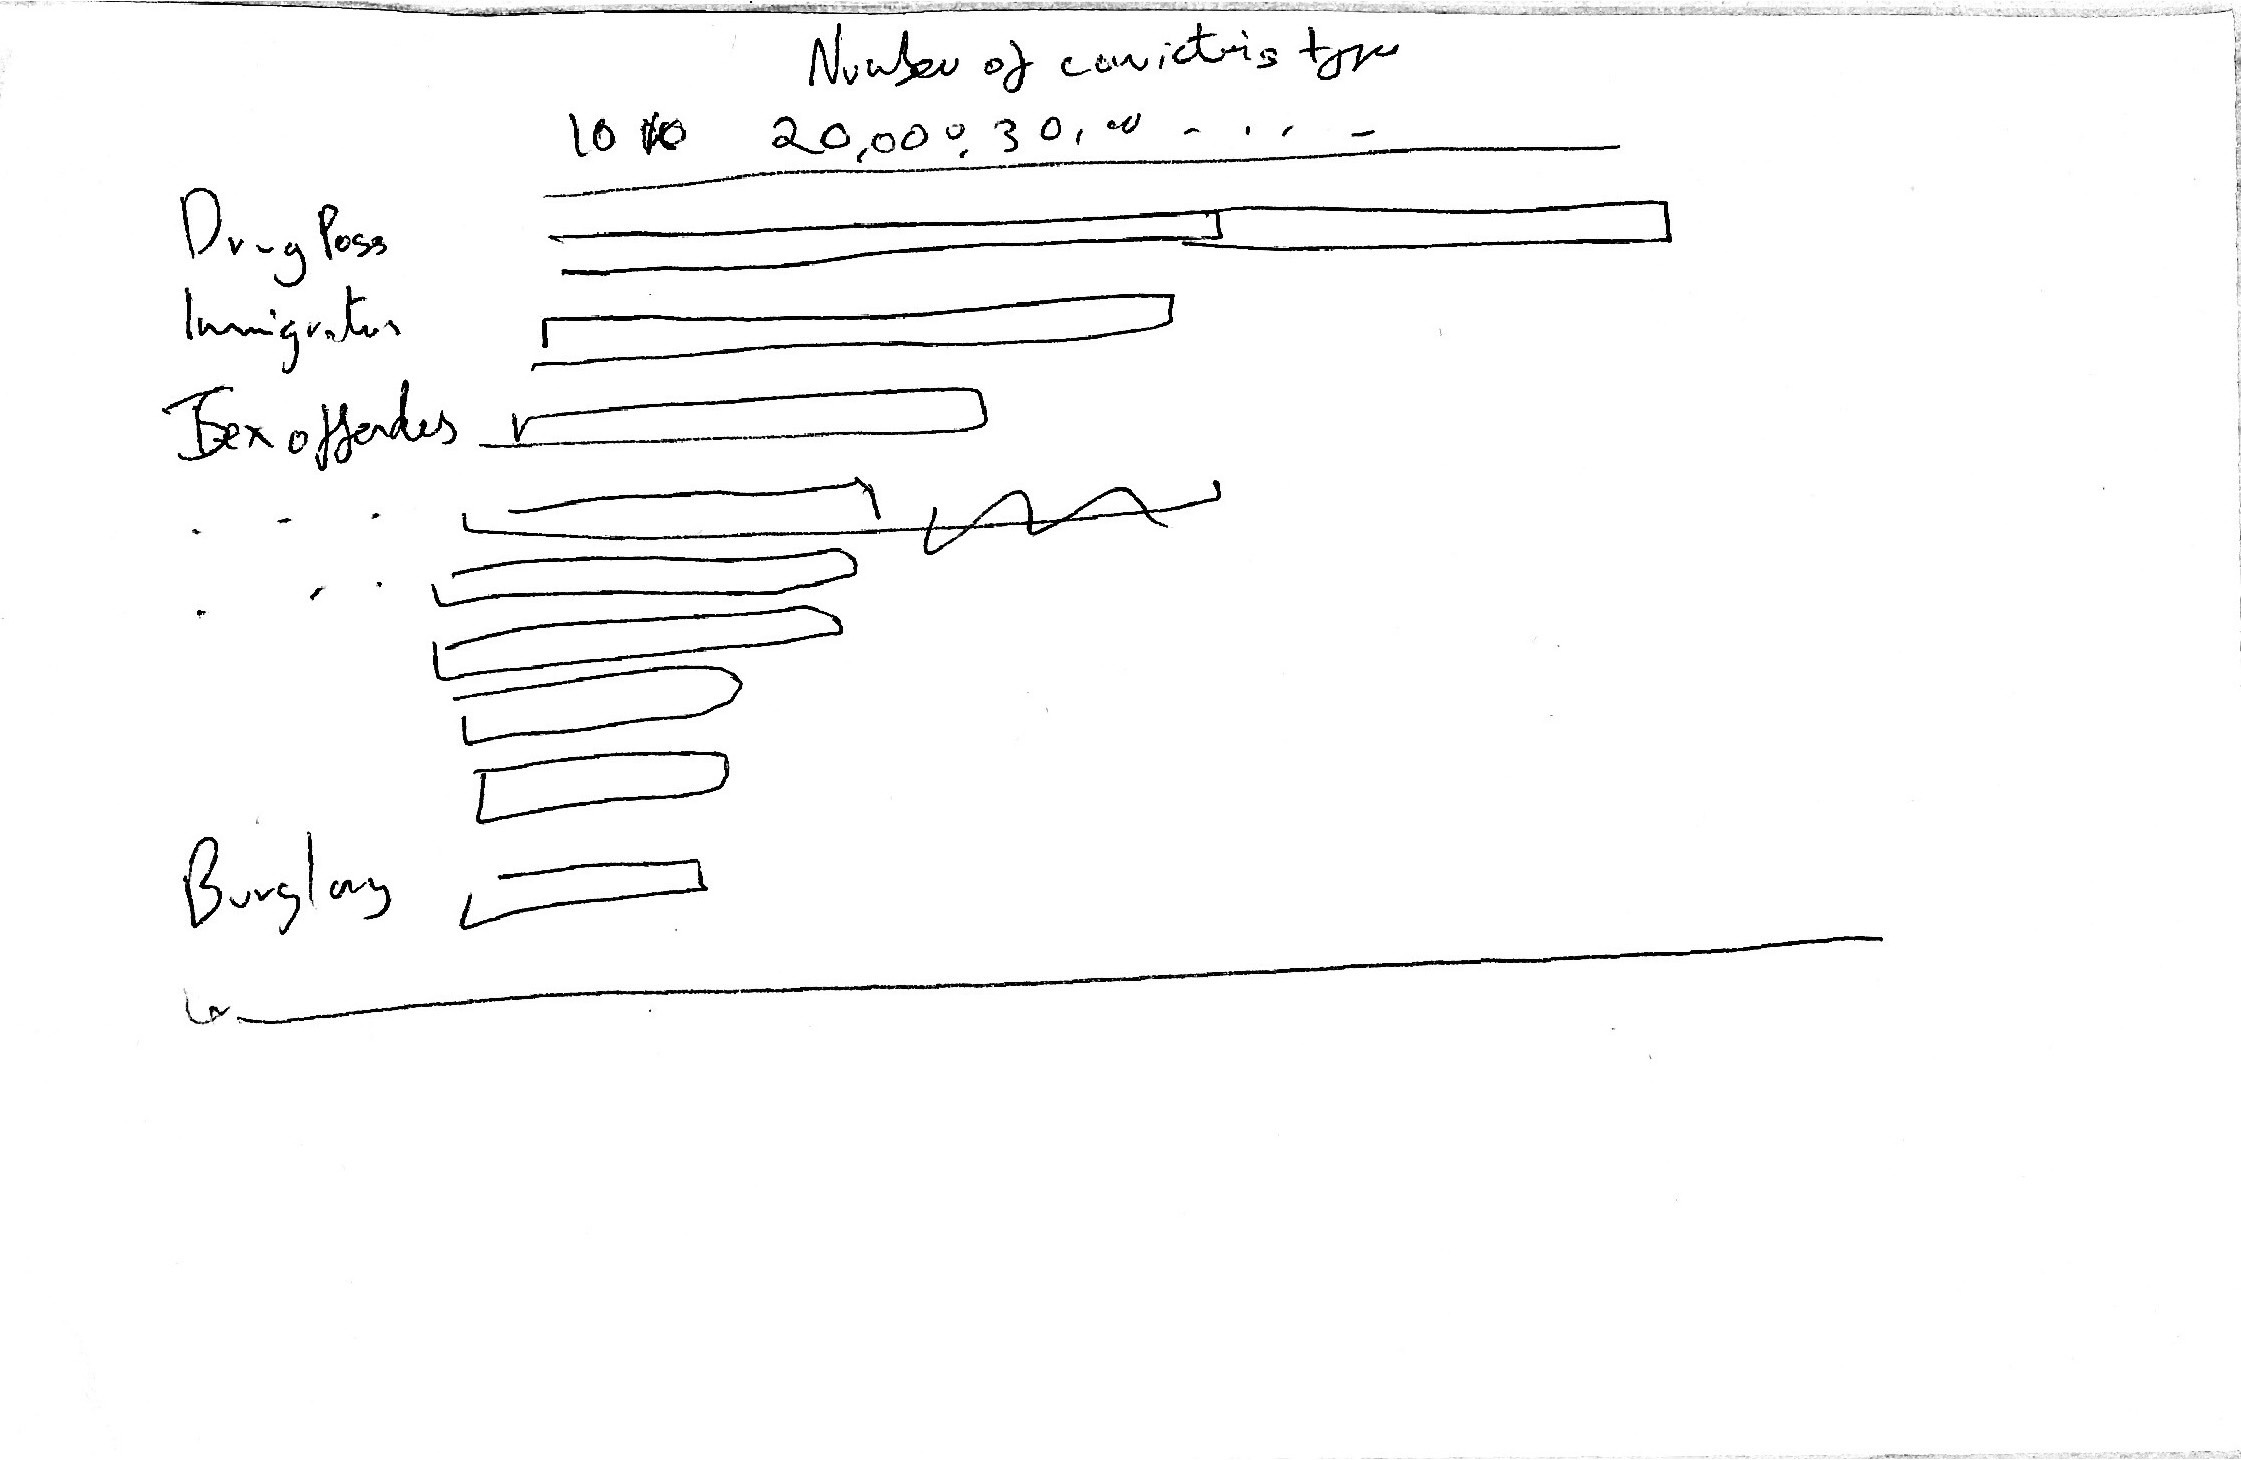 Number of convictions type
10 20,000, 30,00 - . . . -
Drug Poss
Immigration
Sex offenders
. - .
. - .
Burglary